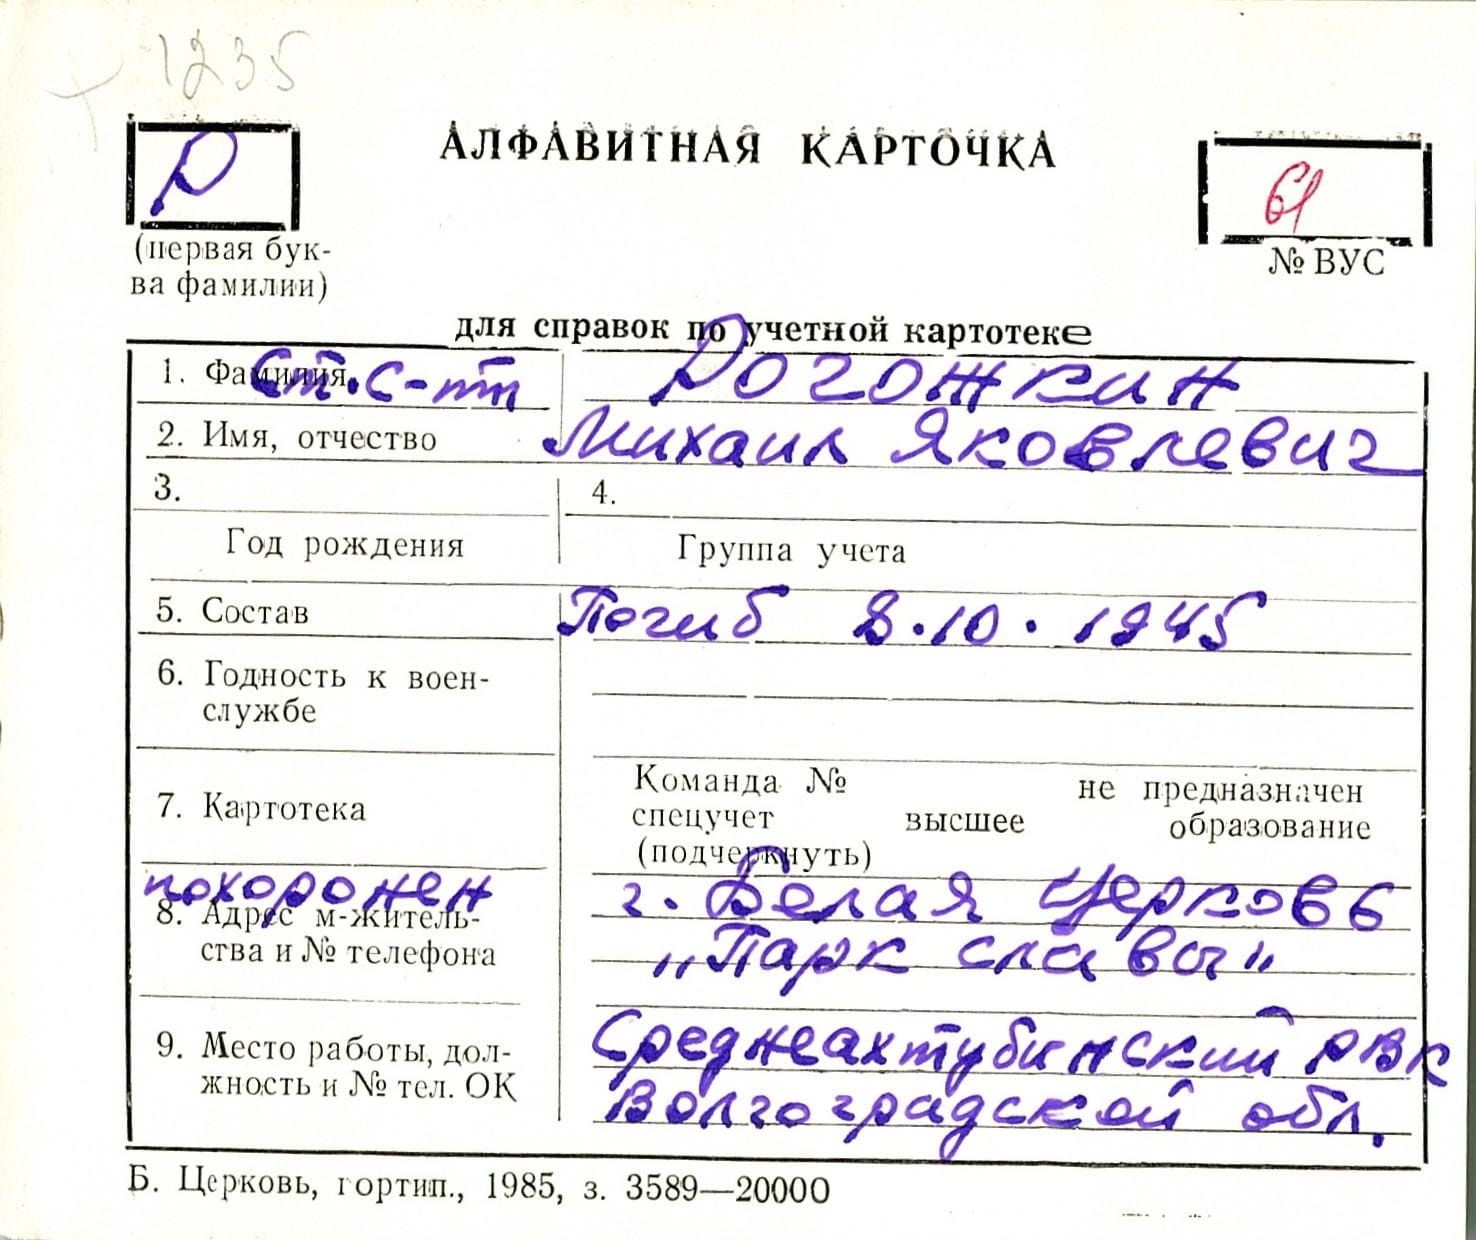 1235
Р
АЛФАВИТНАЯ КАРТОЧКА
61
(первая бук-
ва фамилии)
№ ВУС
для справок по учетной картотеке
1. Фамилия Ст. с-нт Рогожкин
2. Имя, отчество Михаил Яковлевич
3. 4.
Год рождения Группа учета
5. Состав Погиб 8.10.1945
6. Годность к воен-
службе
7. Картотека
Команда № не предназначен
спецучет высшее образование
(подчеркнуть)
похоронен г. Белая Церковь
8. Адрес м-житель-
ства и № телефона „Парк славы"
9. Место работы, дол- Среднеахтубинский РВК
жность и № тел. ОК Волгоградской обл.
Б. Церковь, гортип., 1985, з. 3589—20000